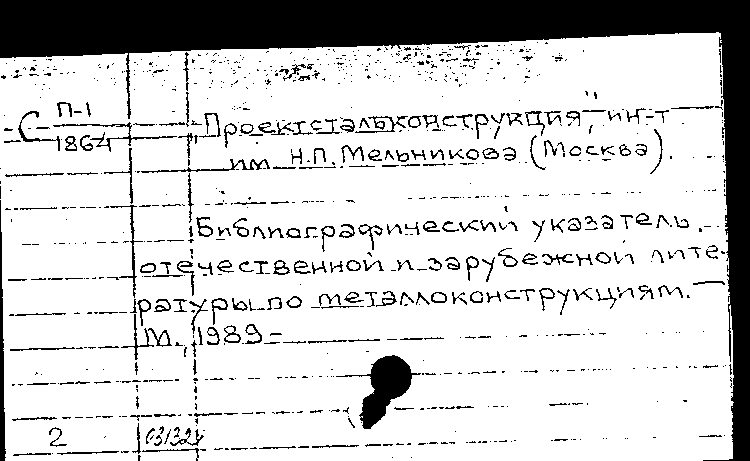 С П-1
1864
„Проектстальконструкция", ин-т
им. Н.П. Мельникова (Москва).
Библиографический указатель
отечественной и зарубежной лите-
ратуры по металлоконструкциям. —
М., 1989 -
2